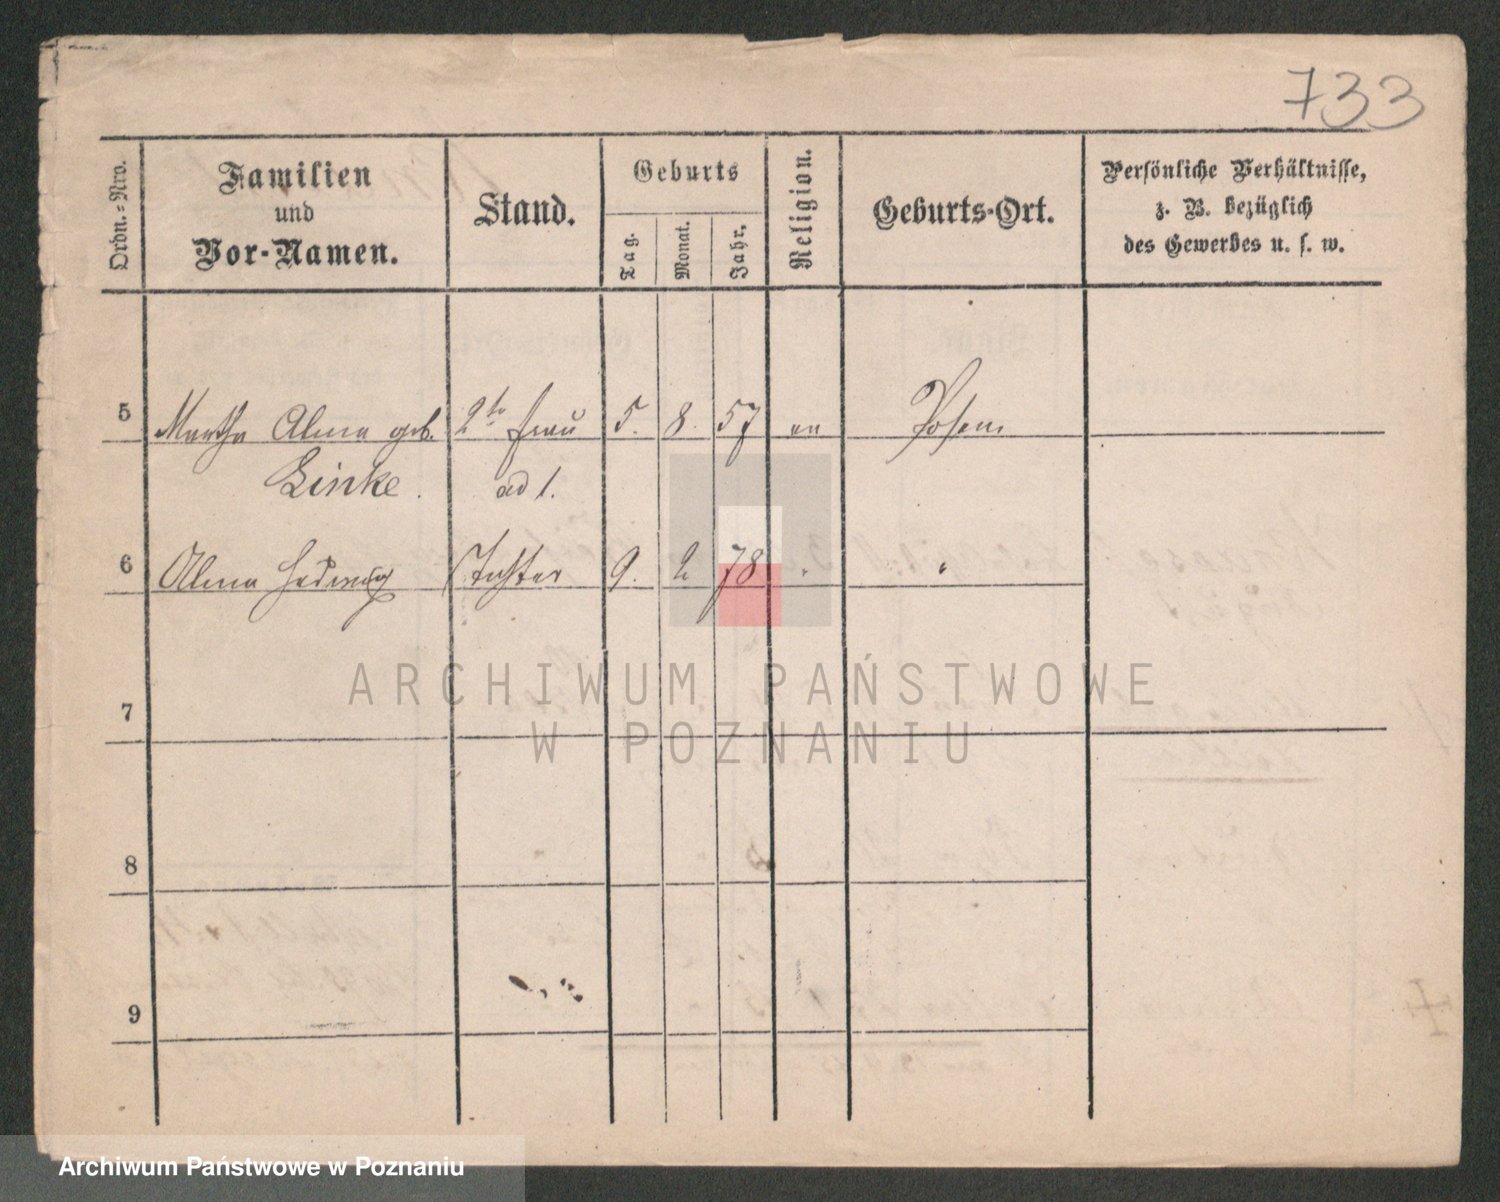 733
Ordn.-Nro.
Familien
und
Vor-Namen.
Stand.
Geburts
Tag.
Monat.
Jahr.
Religion.
Geburts-Ort.
Persönliche Verhältnisse,
z. B. bezüglich
des Gewerbes u. s. w.
5 Martha Alma geb. 2te Frau 5. 8. 57 ev Posen
Linke. ad 1.
6 Alma Hedwig Tochter 9. 2 78 " "
7
ARCHIWUM PAŃSTWOWE
W POZNANIU
8
9
Archiwum Państwowe w Poznaniu